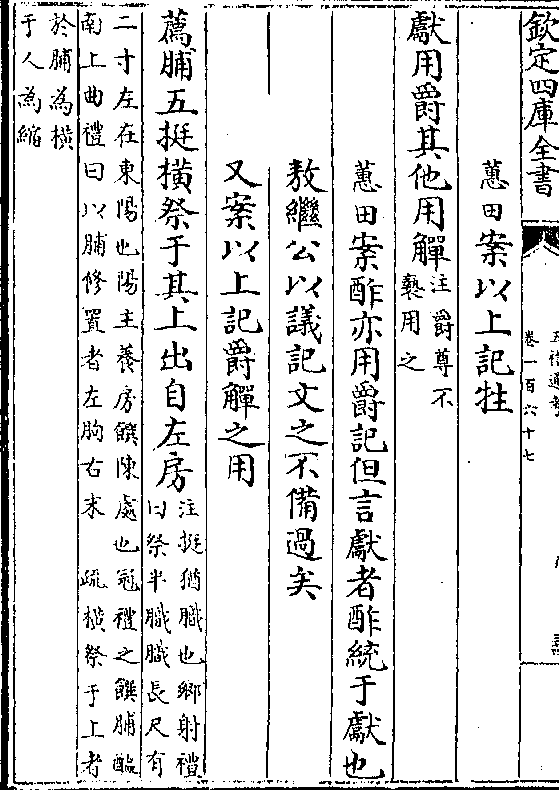 欽定四庫全書
卷一百六十七
蕙田案以上記牲
獻用爵其他用觶注爵尊不
褻用之
蕙田案酢亦用爵記但言獻者酢統于獻也
敖繼公以議記文之不備過矣
又案以上記爵觶之用
薦脯五挺橫祭于其上出自左房注挺猶膱也鄉射禮
曰祭半膱膱長尺有
二寸左在東陽也陽主養房饌陳處也冠禮之饌脯醢
南上曲禮曰以脯修置者左朐右末 疏橫祭于上者
於脯為橫
于人為縮